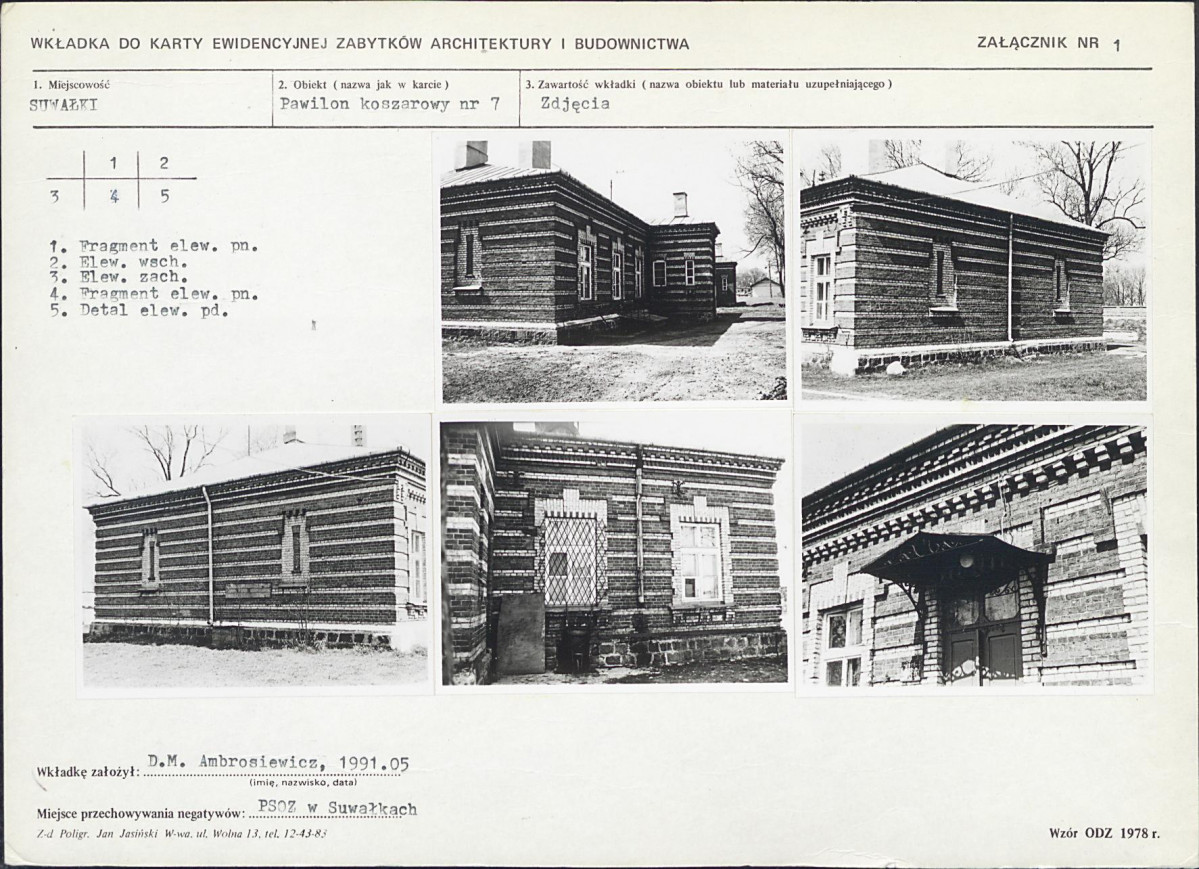 WKŁADKA DO KARTY EWIDENCYJNEJ ZABYTKÓW ARCHITEKTURY I BUDOWNICTWA
ZAŁĄCZNIK NR 1
1. Miejscowość
SUWAŁKI
2. Obiekt ( nazwa jak w karcie )
Pawilon koszarowy nr 7
3. Zawartość wkładki ( nazwa obiektu lub materiału uzupełniającego )
Zdjęcia
1 2
3 4 5
1. Fragment elew. pn.
2. Elew. wsch.
3. Elew. zach.
4. Fragment elew. pn.
5. Detal elew. pd.
Wkładkę założył: D.M. Ambrosiewicz, 1991.05
(imię, nazwisko, data)
Miejsce przechowywania negatywów: PSOZ w Suwałkach
Z-d Poligr. Jan Jasiński W-wa, ul. Wolna 13, tel. 12-43-83
Wzór ODZ 1978 r.